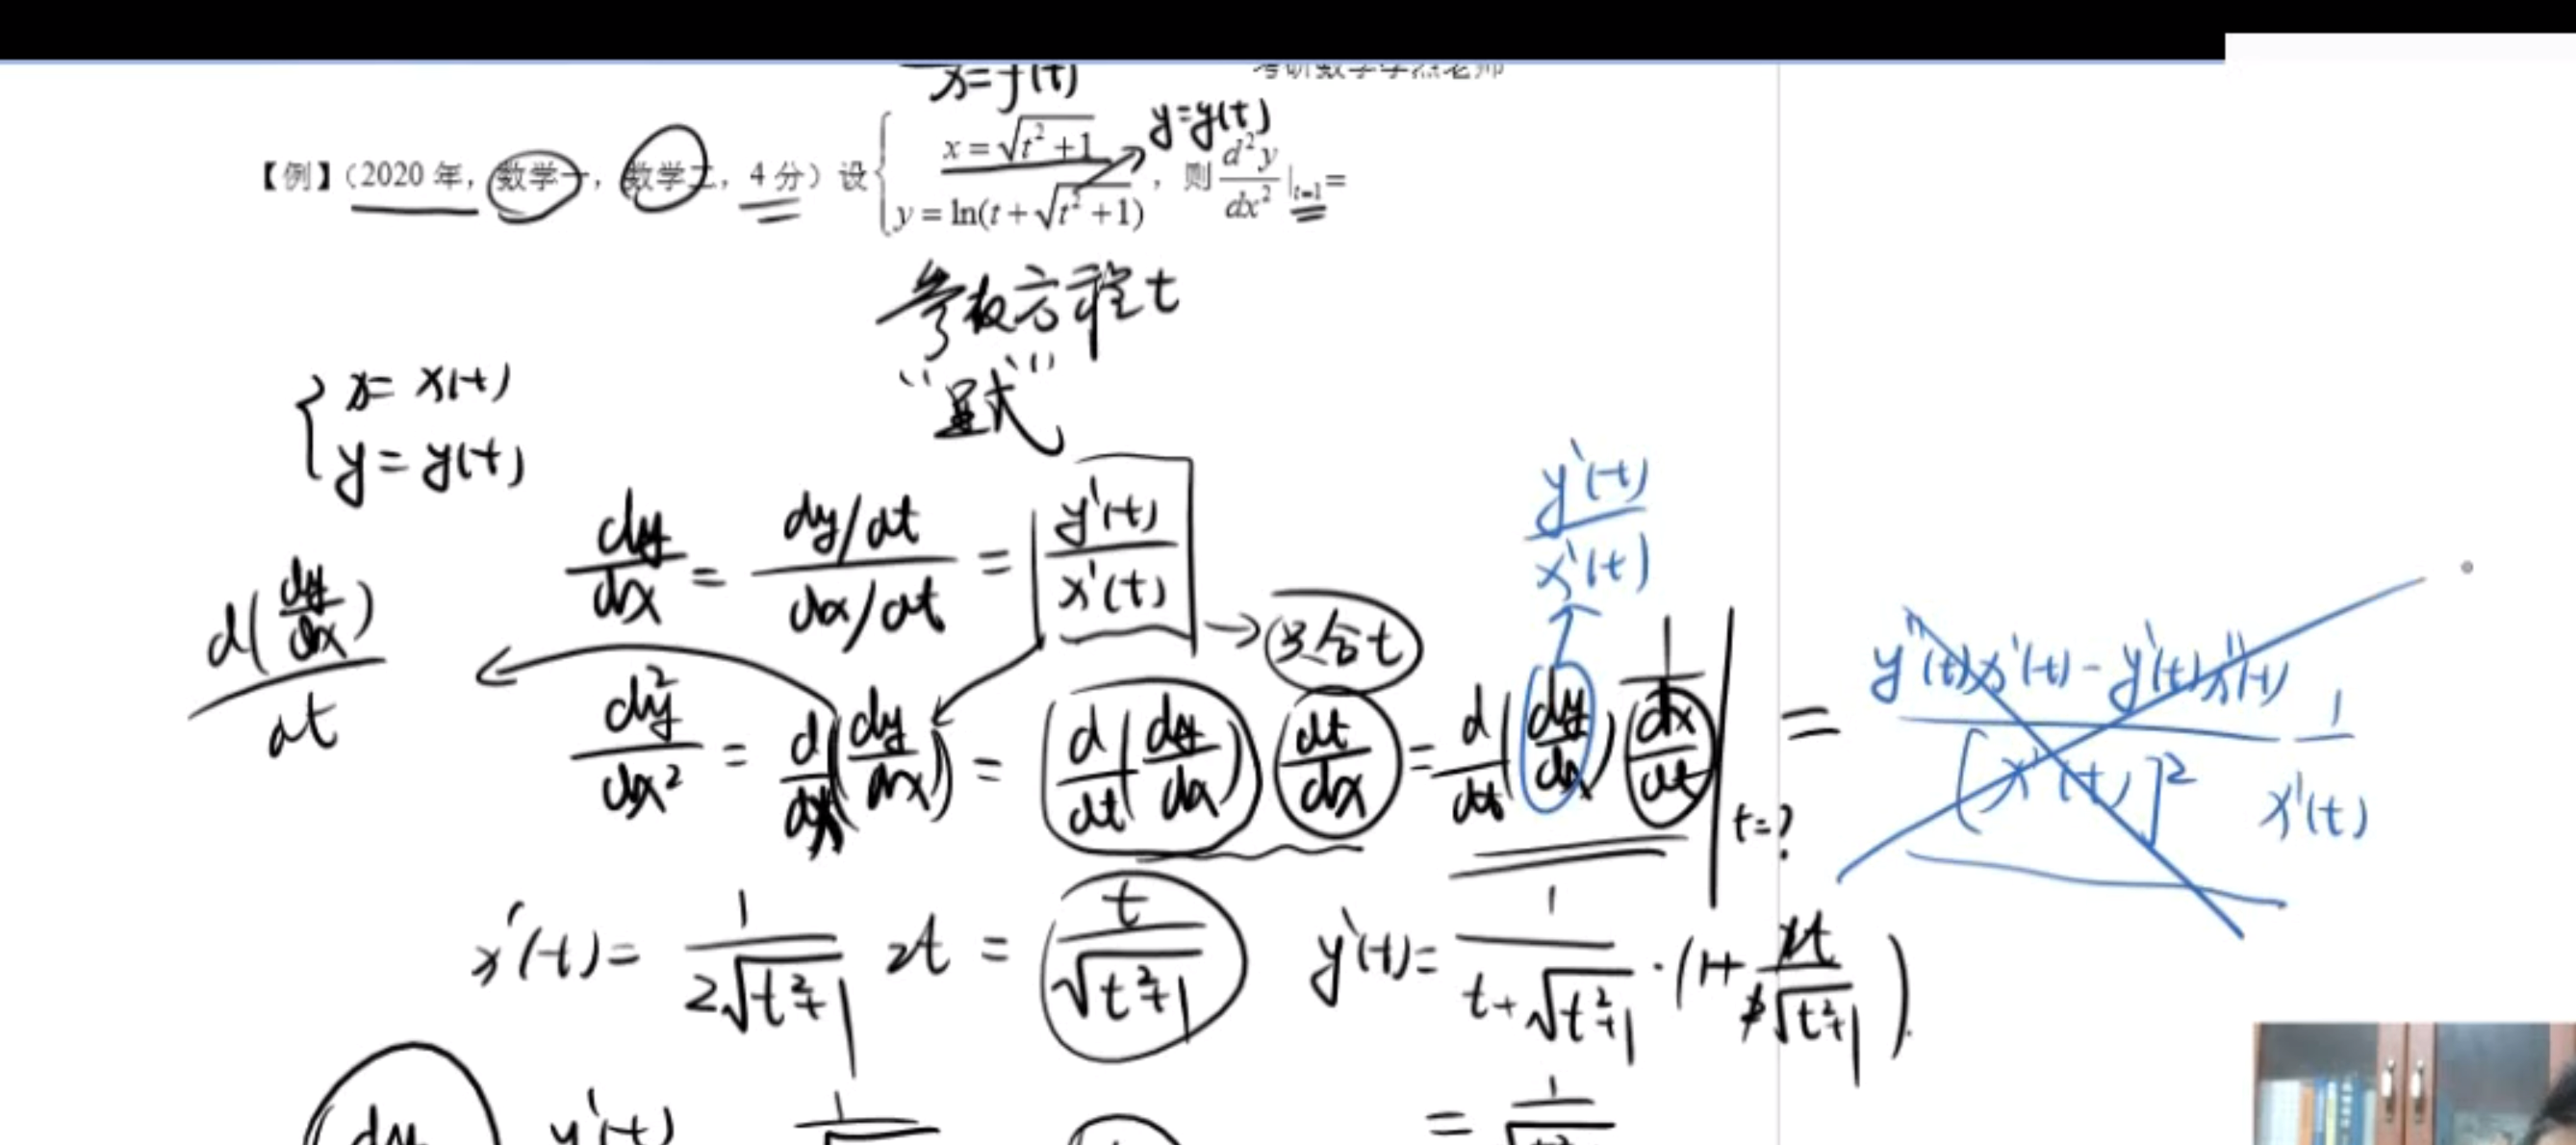 x=f(t)
y=y(t)
【例】（2020 年，数学一，数学二，4 分）设 { x = √(t² + 1) , y = ln(t + √(t² + 1) ) ，则 d²y/dx² |t=1 =
参数方程t
“显式”
{ x = x(t)
y = y(t)
dy/dx = (dy/dt)/(dx/dt) = y'(t)/x'(t) → 只含t
y'(t)/x'(t)
d(dy/dx)/dt
d²y/dx² = d/dx (dy/dx) = d/dt (dy/dx) dt/dx = d/dt (dy/dx) 1/(dx/dt) |t=? = (y''(t)x'(t) - y'(t)x''(t))/[x'(t)]² 1/x'(t)
x'(t) = 1/(2√(t²+1)) 2t = t/√(t²+1) y'(t) = 1/(t+√(t²+1)) · (1+ 2t/(2√(t²+1)))
dy y'(t) 1
= 1